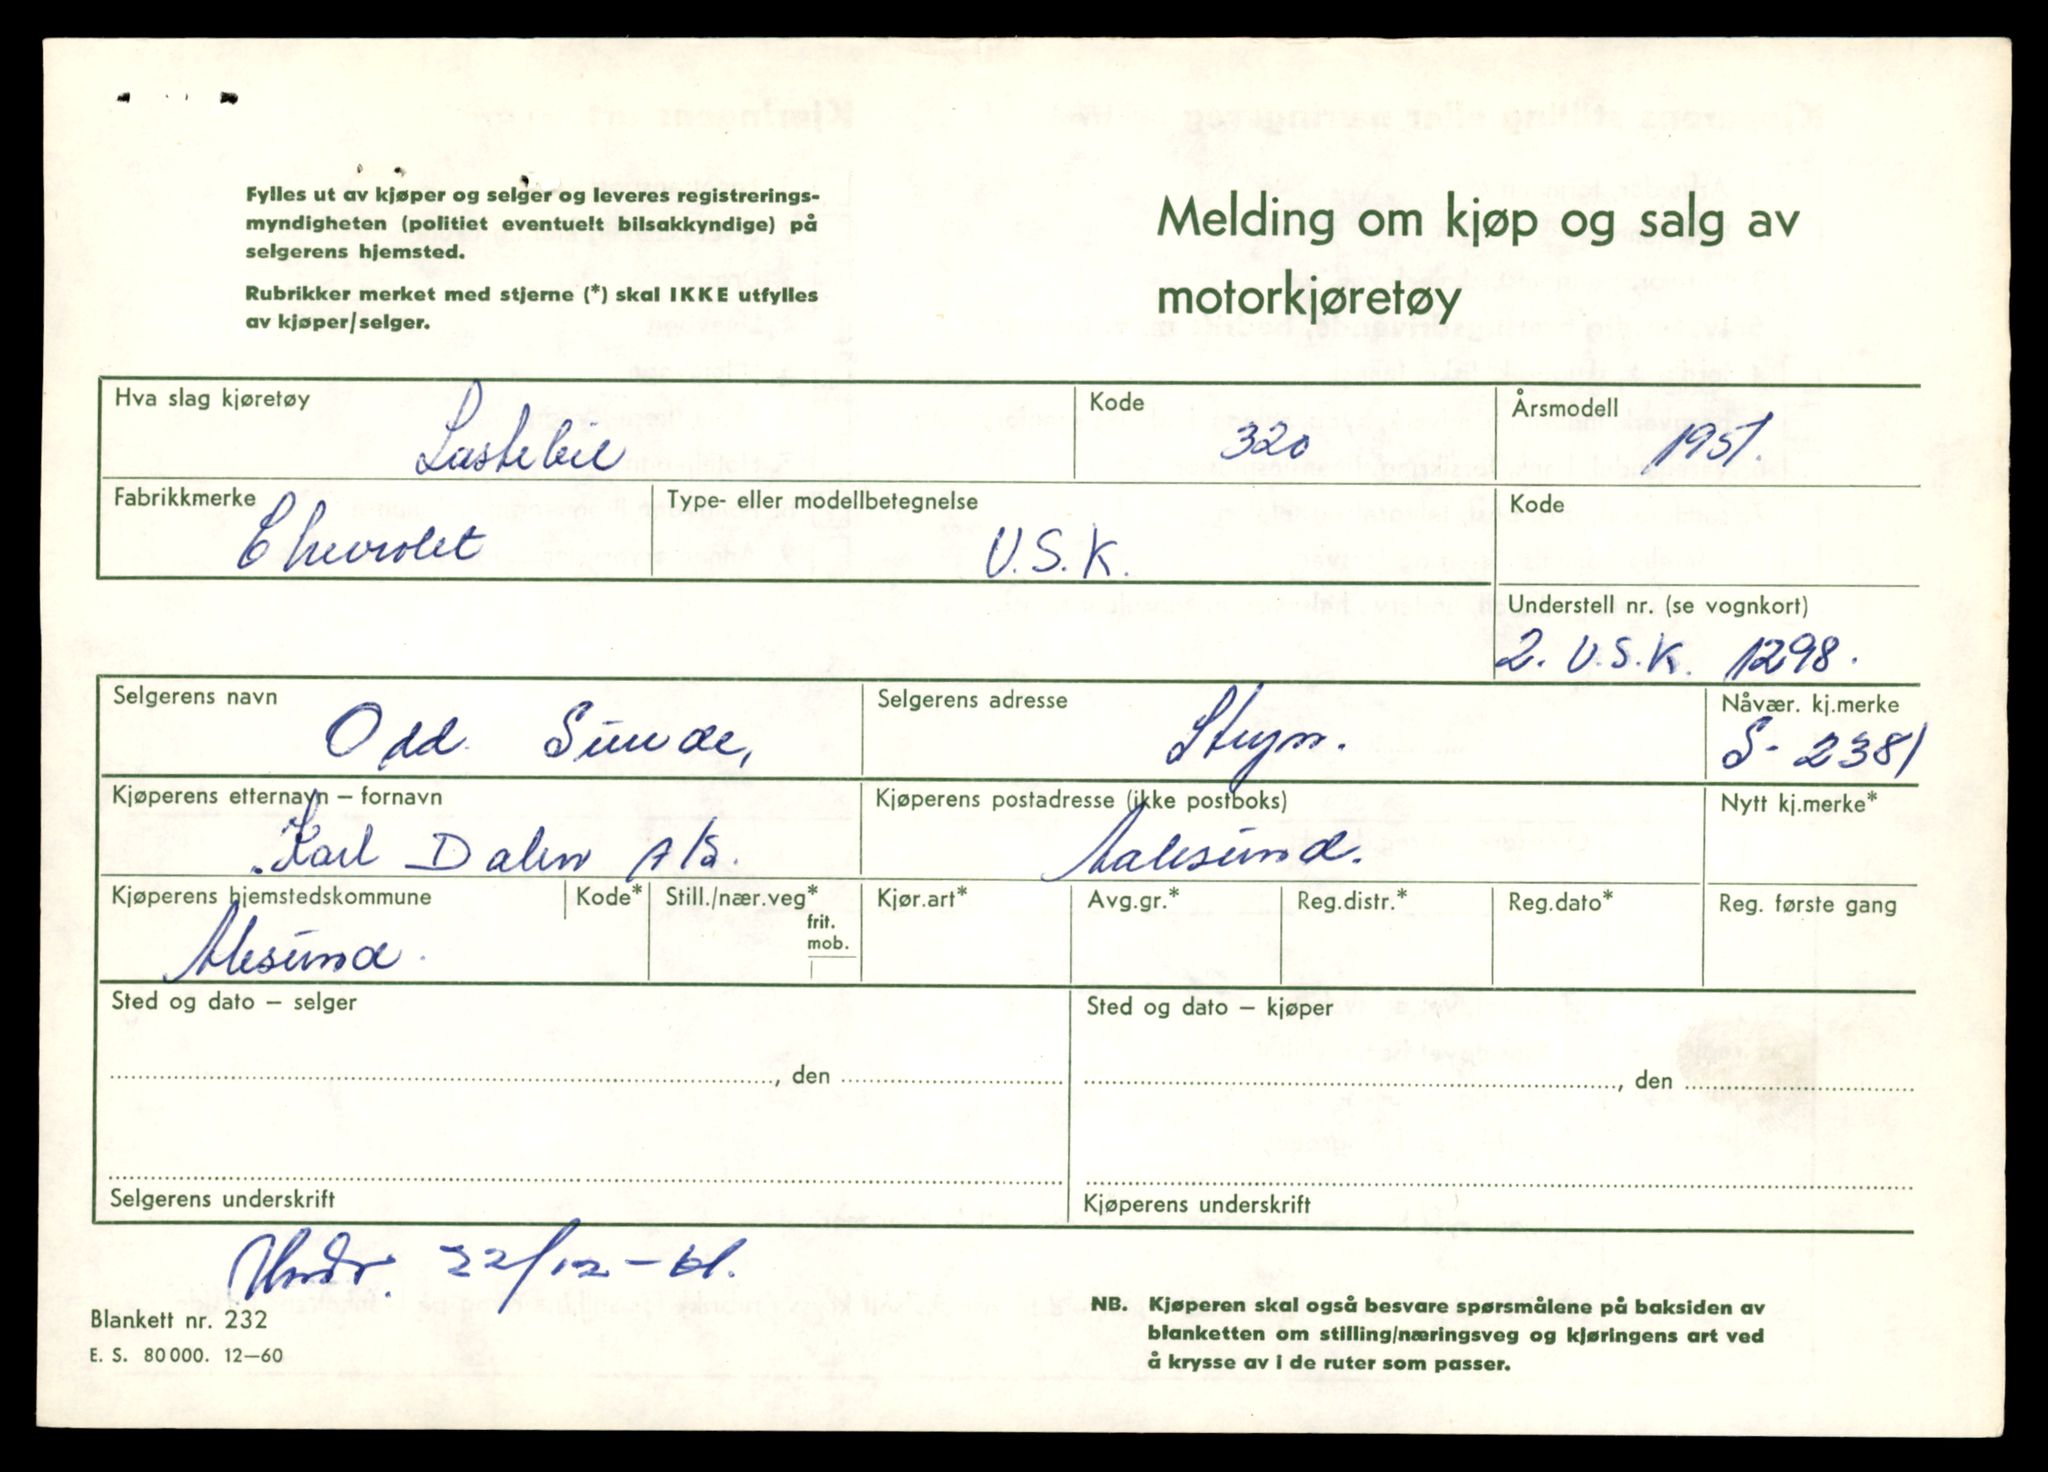 Fylles ut av kjøper og selger og leveres registrerings-
myndigheten (politiet eventuelt bilsakkyndige) på
selgerens hjemsted.
Rubrikker merket med stjerne (*) skal IKKE utfylles
av kjøper/selger.
Melding om kjøp og salg av
motorkjøretøy
Hva slag kjøretøy
Lastebil
Kode
320
Årsmodell
1951.
Fabrikkmerke
Chevrolet
Type- eller modellbetegnelse
U.S.K.
Kode
Understell nr. (se vognkort)
2. U.S.K. 1298.
Selgerens navn
Odd Sunde,
Selgerens adresse
Stryn.
Nåvær. kj.merke
S-2381
Kjøperens etternavn – fornavn
Karl Dalen A/S.
Kjøperens postadresse (ikke postboks)
Aalesund.
Nytt kj.merke*
Kjøperens hjemstedskommune
Alesund.
Kode*
Still./nær.veg*
frit.
mob.
Kjør.art*
Avg.gr.*
Reg.distr.*
Reg.dato*
Reg. første gang
Sted og dato – selger
Sted og dato – kjøper
, den
, den
Selgerens underskrift
Kjøperens underskrift
22/12-61.
Blankett nr. 232
E. S. 80 000. 12—60
NB. Kjøperen skal også besvare spørsmålene på baksiden av
blanketten om stilling/næringsveg og kjøringens art ved
å krysse av i de ruter som passer.